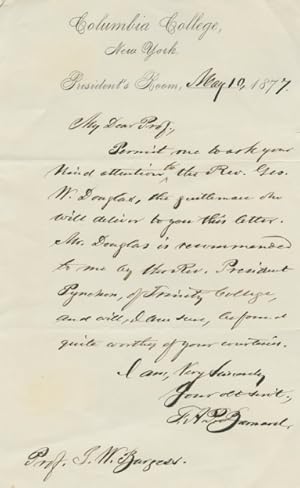 Columbia College,
New York.
President's Room, May 10, 1877.
My Dear Prof.,
Permit me to ask your
kind attention to the Rev. Geo.
W. Douglas, the gentleman who
will deliver to you this letter.
Mr. Douglas is recommended
to me by the Rev. President
Pynchon, of Trinity College,
and will, I am sure, be found
quite worthy of your courtesies.
I am, Very Sincerely
Your obt svt,
F. A. P. Barnard.
Prof. J. W. Burgess.